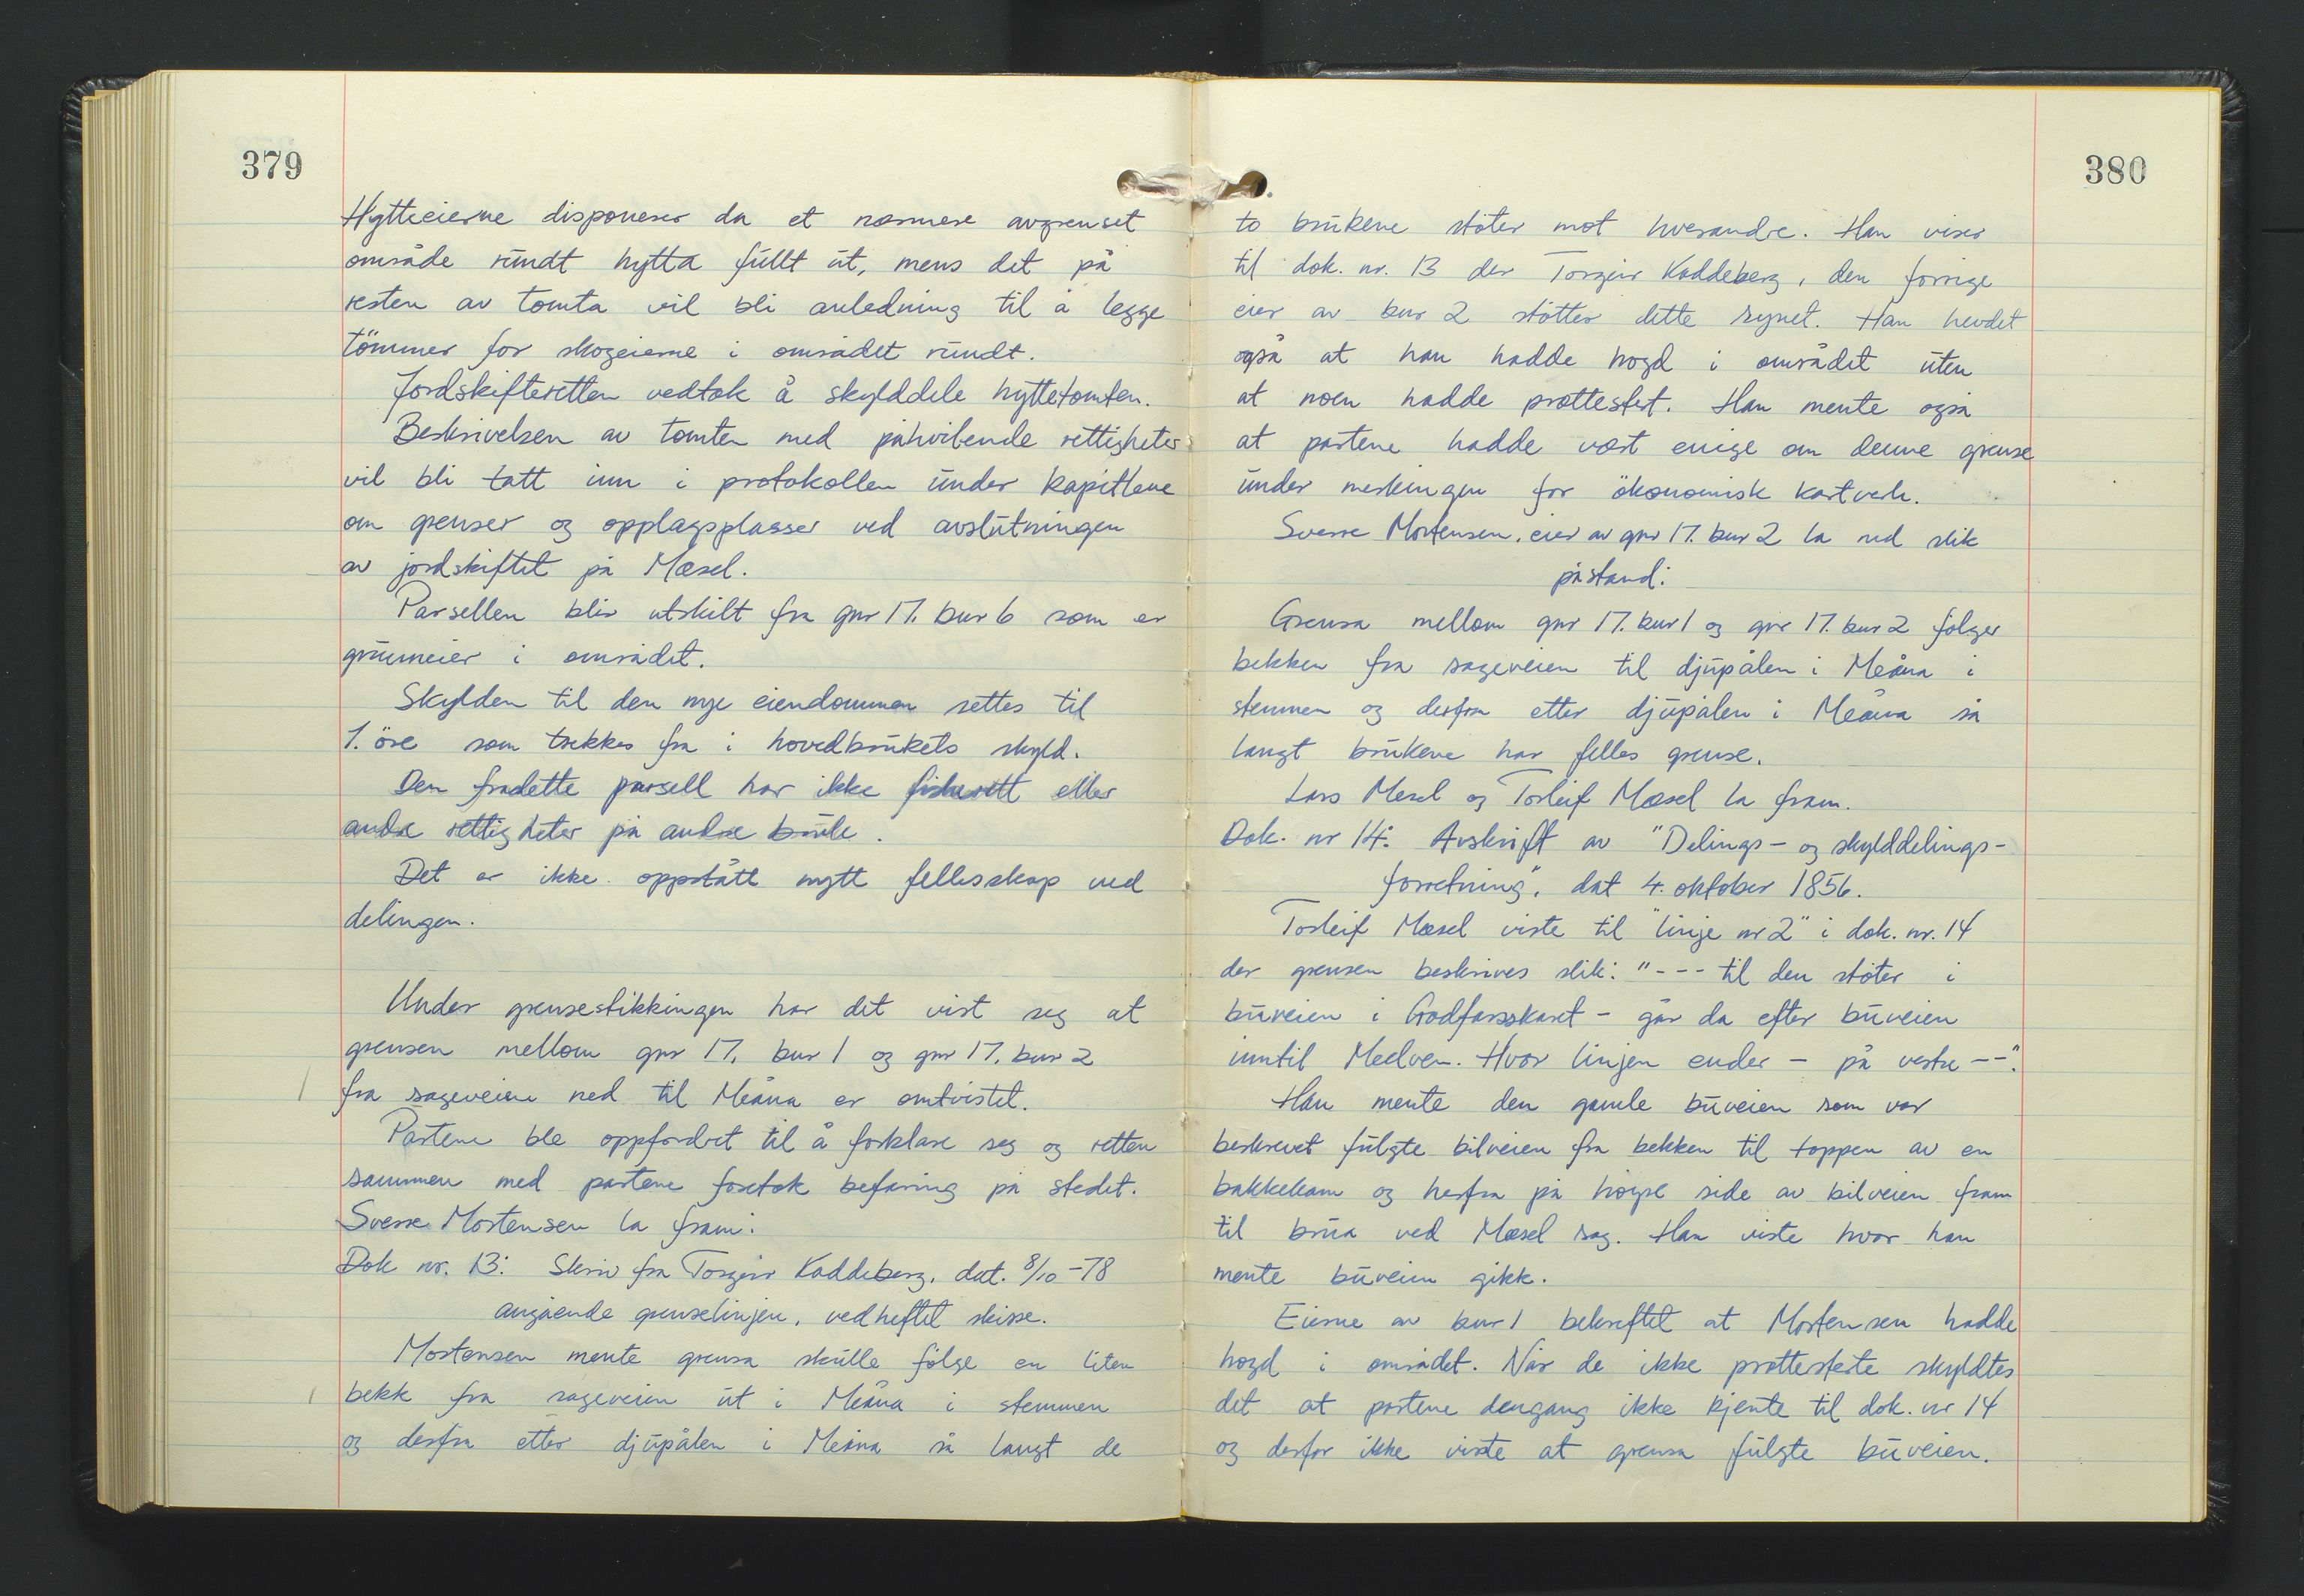 379
Hytteeierne disponerer da et nærmere avgrenset
område rundt hytta fullt ut, mens det på
resten av tomta vil bli anledning til å legge
tömmer for skogeierne i området rundt.
Jordskifteretten vedtok å skylddele hyttetomten.
Beskrivelsen av tomten med påhvilende rettigheter
vil bli tatt inn i protokollen under kapitlene
om grenser og opplagsplasser ved avslutningen
av jordskiftet på Mæsel.
Parsellen blir utskilt fra gnr 17. bnr 6 som er
grunneier i området.
Skylden til den nye eiendommen settes til
1. öre som trekkes fra i hovedbrukets skyld.
Den fradelte parsell har ikke fiskerett eller
andre rettigheter på andre bruk.
Det er ikke oppstått nytt fellesskap ved
delingen.
Under grensestikkingen har det vist seg at
grensen mellom gnr 17. bnr 1 og gnr 17. bnr 2
fra sageveien ned til Meåna er omtvistet.
Partene ble oppfordret til å forklare seg og retten
sammen med partene foretok befaring på stedet.
Sverre Mortensen la fram:
Dok nr. 13: Skriv fra Torgeir Kaddeberg, dat. 8/10 -78
angående grenselinjen, vedheftet skisse.
Mortensen mente grensa skulle följe en liten
bekk fra sageveien ut i Meåna i stemmen
og derfra etter djupålen i Meåna så langt de
380
to brukene stöter mot hverandre. Han viser
til dok. nr. 13 der Torgeir Kaddeberg, den forrige
eier av bnr 2 stötter dette synet. Han hevdet
også at han hadde hogd i området uten
at noen hadde prottestert. Han mente også
at partene hadde vært enige om denne grense
under merkingen for ökonomisk kartverk.
Sverre Mortensen, eier av gnr 17. bnr 2 la ned slik
påstand:
Grensa mellom gnr 17. bnr 1 og gnr 17. bnr 2 fölger
bekken fra sageveien til djupålen i Meåna i
stemmen og derfra etter djupålen i Meåna så
langt brukene har felles grense.
Lars Mesel og Torleif Mæsel la fram.
Dok. nr 14: Avskrift av "Delings- og skylddelings-
forretning", dat 4. oktober 1856.
Torleif Mæsel viste til "linje nr 2" i dok. nr. 14
der grensen beskrives slik: "--- til den stöter i
buveien i Godfarsskaret - går da efter buveien
inntil Meelven. Hvor linjen ender - på vestre --".
Han mente den gamle buveien som var
beskrevet fulgte bilveien fra bekken til toppen av en
bakkekam og herfra på höyre side av bilveien fram
til brua ved Mæsel sag. Han viste hvor han
mente buveien gikk.
Eierne av bnr 1 bekreftet at Mortensen hadde
hogd i området. Når de ikke prottesterte skyldtes
det at partene dengang ikke kjente til dok. nr 14
og derfor ikke viste at grensa fulgte buveien.